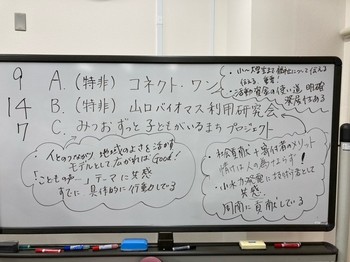 ・小〜大学生まで
伝える、重要！
・活動資金の使い道 明確
9 A.（特非）コネクト・ワン
14 B.（特非）山口バイオマス利用研究会
7 C. みつお ずっと子どもがいるまち プロジェクト
・人とのつながり 地域のよさを活かす
モデルとして 広がればGood!
・「こどもの声…」テーマに共感
すでに 具体的に行動している
・社会貢献＋寄付者のメリット
情けは人の為ならず！
・小水力発電に技術者として
共感
・周南に貢献している